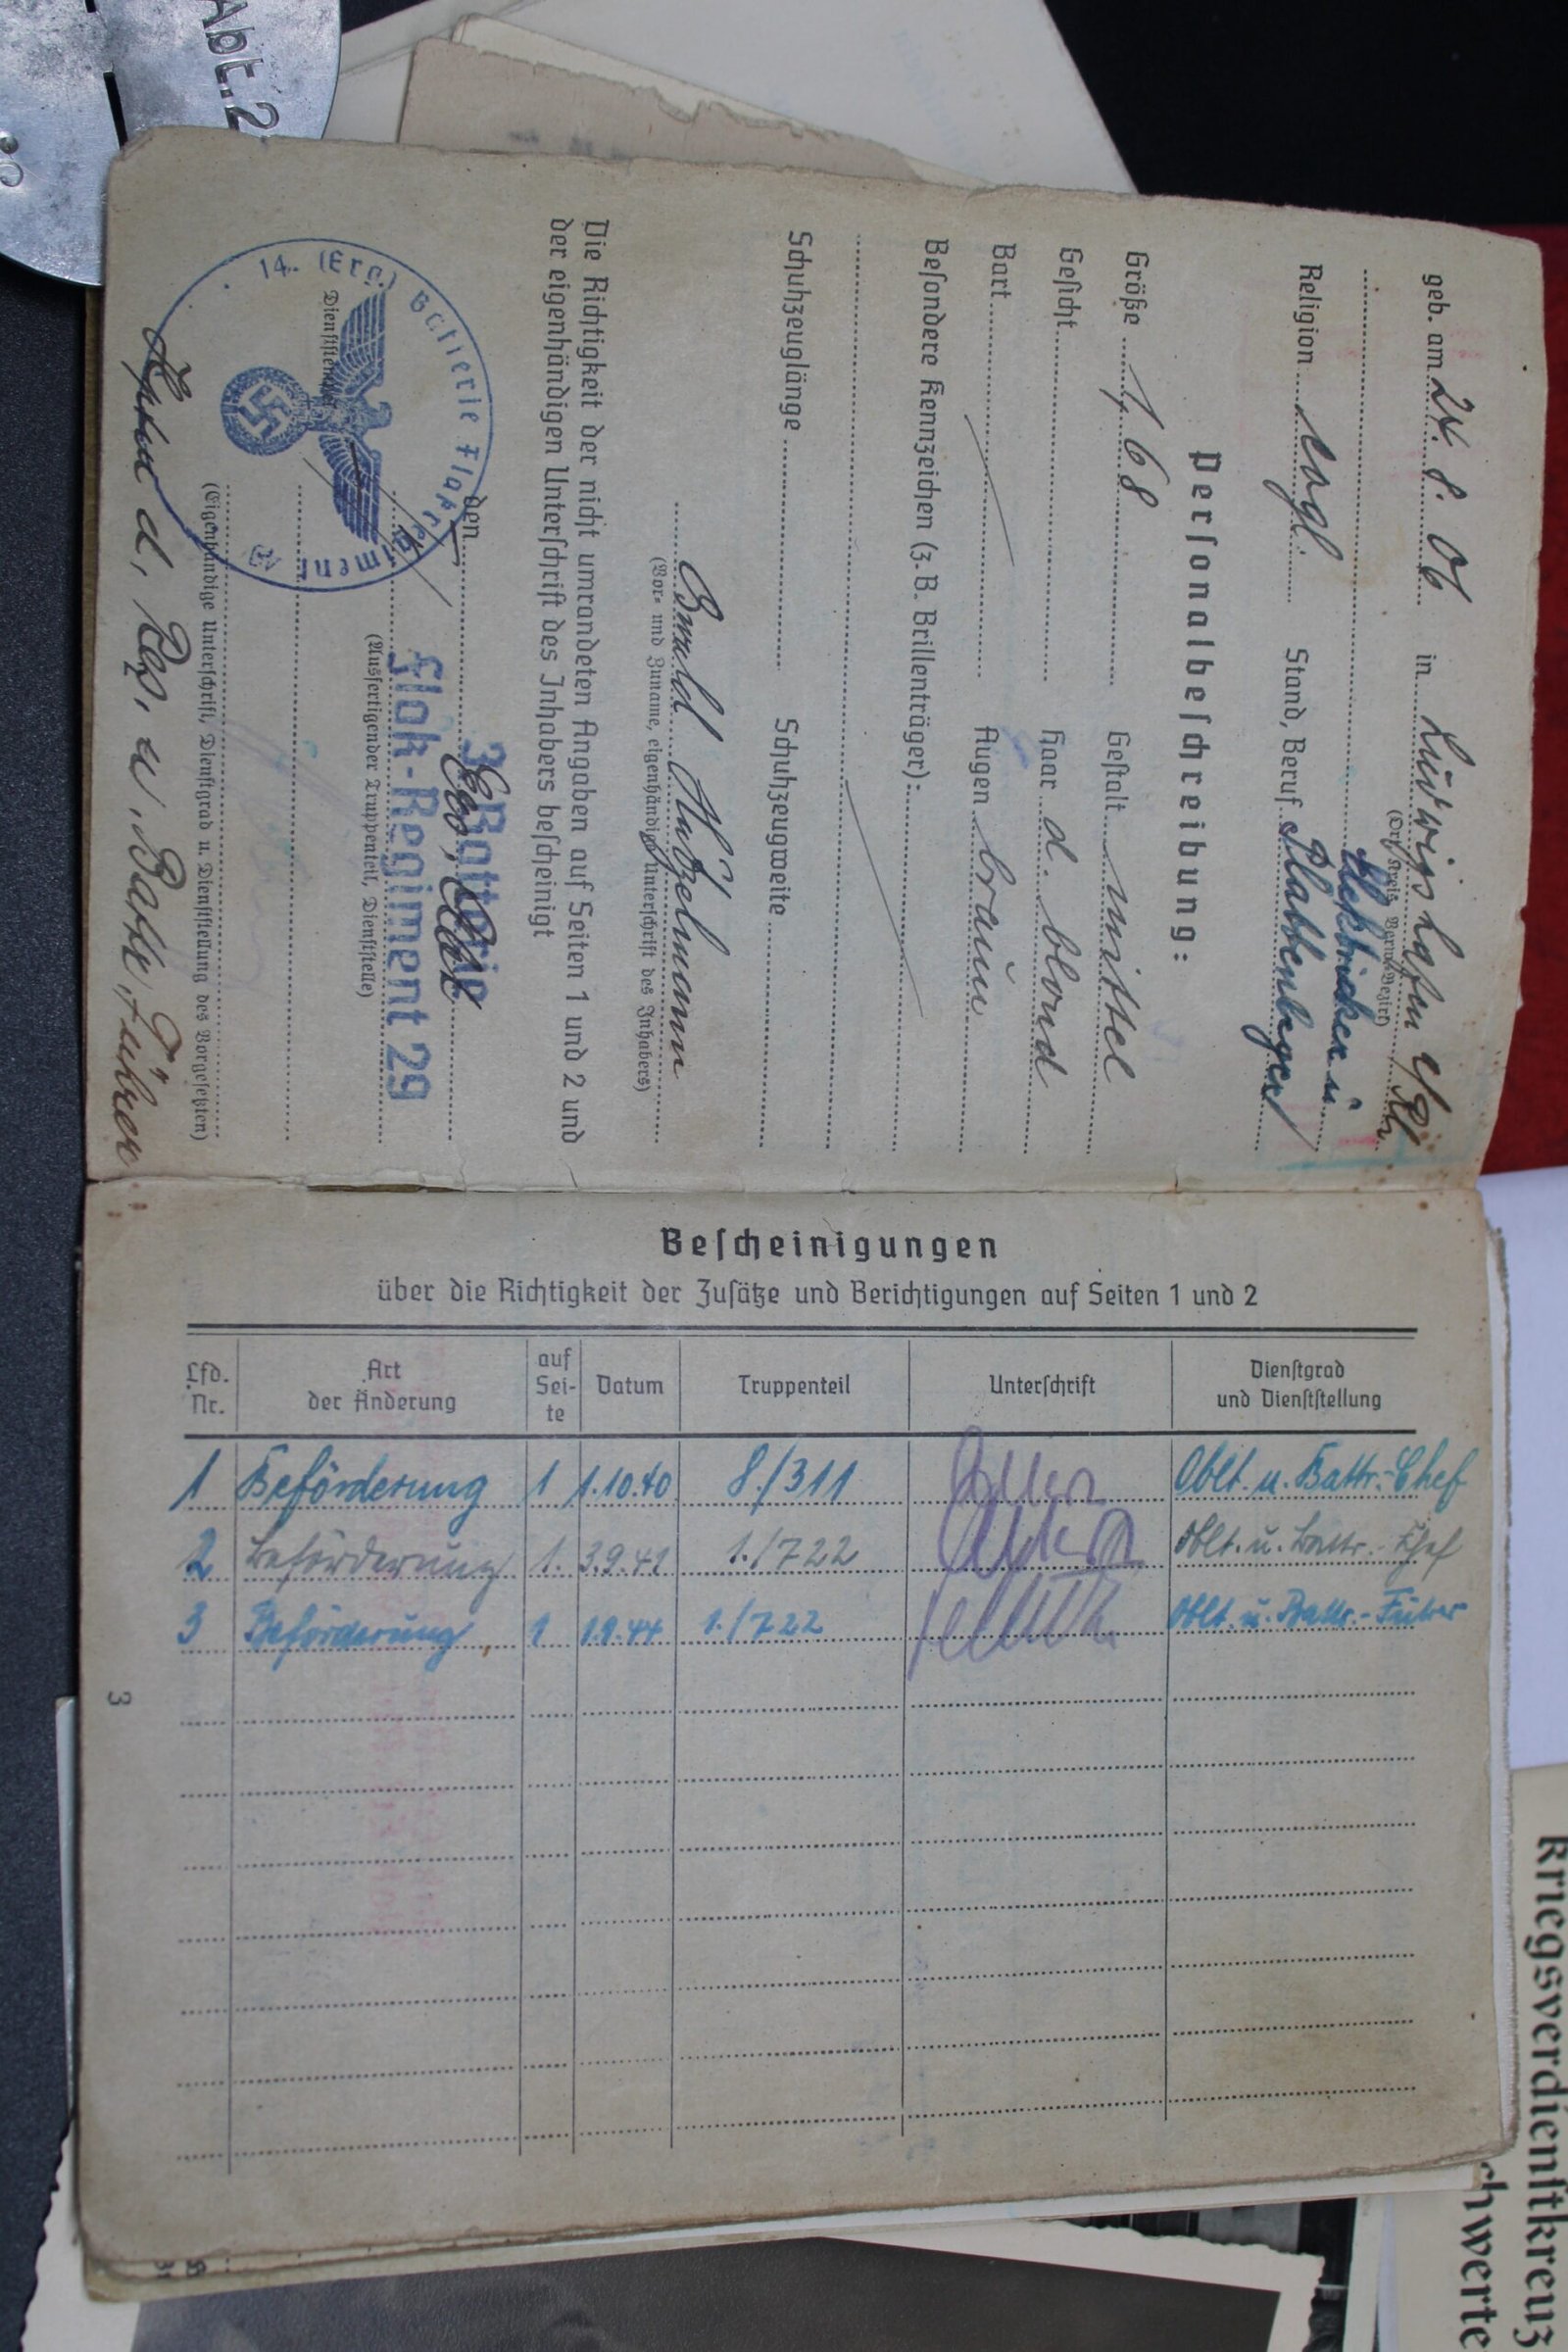 Abt. 2
geb. am 24. 8. 06 in Ludwigshafen a/Rh.
(Ort, Kreis, Verw.-Bezirk)
Religion evgl. Stand, Beruf Plattenleger
Personalbeschreibung:
Größe 1,68 Gestalt mittel
Gesicht Haar d. blond
Bart Augen braun
Besondere Kennzeichen (z. B. Brillenträger):
Schuhzeuglänge Schuhzeugweite
(Vor- und Zuname, eigenhändige Unterschrift des Inhabers)
Die Richtigkeit der nicht umrandeten Angaben auf Seiten 1 und 2 und
der eigenhändigen Unterschrift des Inhabers bescheinigt
den
3. Batterie
Flak-Regiment 29
(Ausfertigender Truppenteil, Dienststelle)
14. (Erg.) Batterie Flakregiment
(Eigenhändige Unterschrift, Dienstgrad u. Dienststellung des Vorgesetzten)
d. Res. u. Battr. Führer
Bescheinigungen
über die Richtigkeit der Zusätze und Berichtigungen auf Seiten 1 und 2
Lfd. Nr. Art der Änderung auf Sei-te Datum Truppenteil Unterschrift Dienstgrad und Dienststellung
1 Beförderung 1 1.10.40 8/311 Oblt. u. Battr.-Chef
2 Beförderung 1. 3.9.41 1./722 Oblt. u. Battr.-Chef
3 Beförderung 1 1.9.44 1./722 Oblt. u. Battr.-Führer
3
Kriegsverdienstkreuz
chwerte